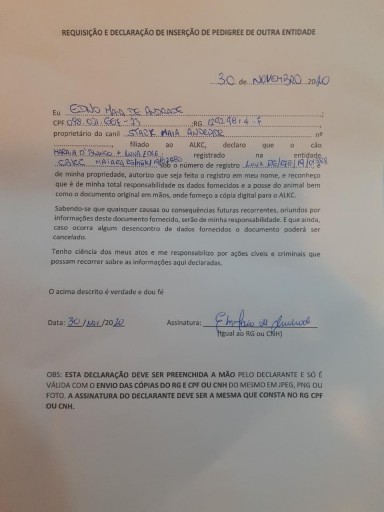 REQUISIÇÃO E DECLARAÇÃO DE INSERÇÃO DE PEDIGREE DE OUTRA ENTIDADE
30 de NOVEMBRO 2020
Eu EDNO MAIA DE ANDRADE,
CPF, RG
proprietário do canil STARK MAIA ANDRADE, nº
, filiado ao ALKC, declaro que o cão
+ LUNA registrado na entidade
sob o número de registro LUNA
de minha propriedade, autorizo que seja feito o registro em meu nome, e reconheço
que é de minha total responsabilidade os dados fornecidos e a posse do animal bem
como o documento original em mãos, onde forneço a cópia digital para o ALKC.
Sabendo-se que quaisquer causas ou consequências futuras recorrentes, oriundos por
informações deste documento fornecido, serão de minha responsabilidade. E que ainda,
caso ocorra algum desencontro de dados fornecidos o documento poderá ser
cancelado.
Tenho ciência dos meus atos e me responsabilizo por ações cíveis e criminais que
possam recorrer sobre as informações aqui declaradas.
O acima descrito é verdade e dou fé
Data: 30/NOV/2020 Assinatura:
(Igual ao RG ou CNH)
OBS: ESTA DECLARAÇÃO DEVE SER PREENCHIDA A MÃO PELO DECLARANTE E SÓ É
VÁLIDA COM O ENVIO DAS CÓPIAS DO RG E CPF OU CNH DO MESMO EM JPEG, PNG OU
FOTO. A ASSINATURA DO DECLARANTE DEVE SER A MESMA QUE CONSTA NO RG CPF
OU CNH.